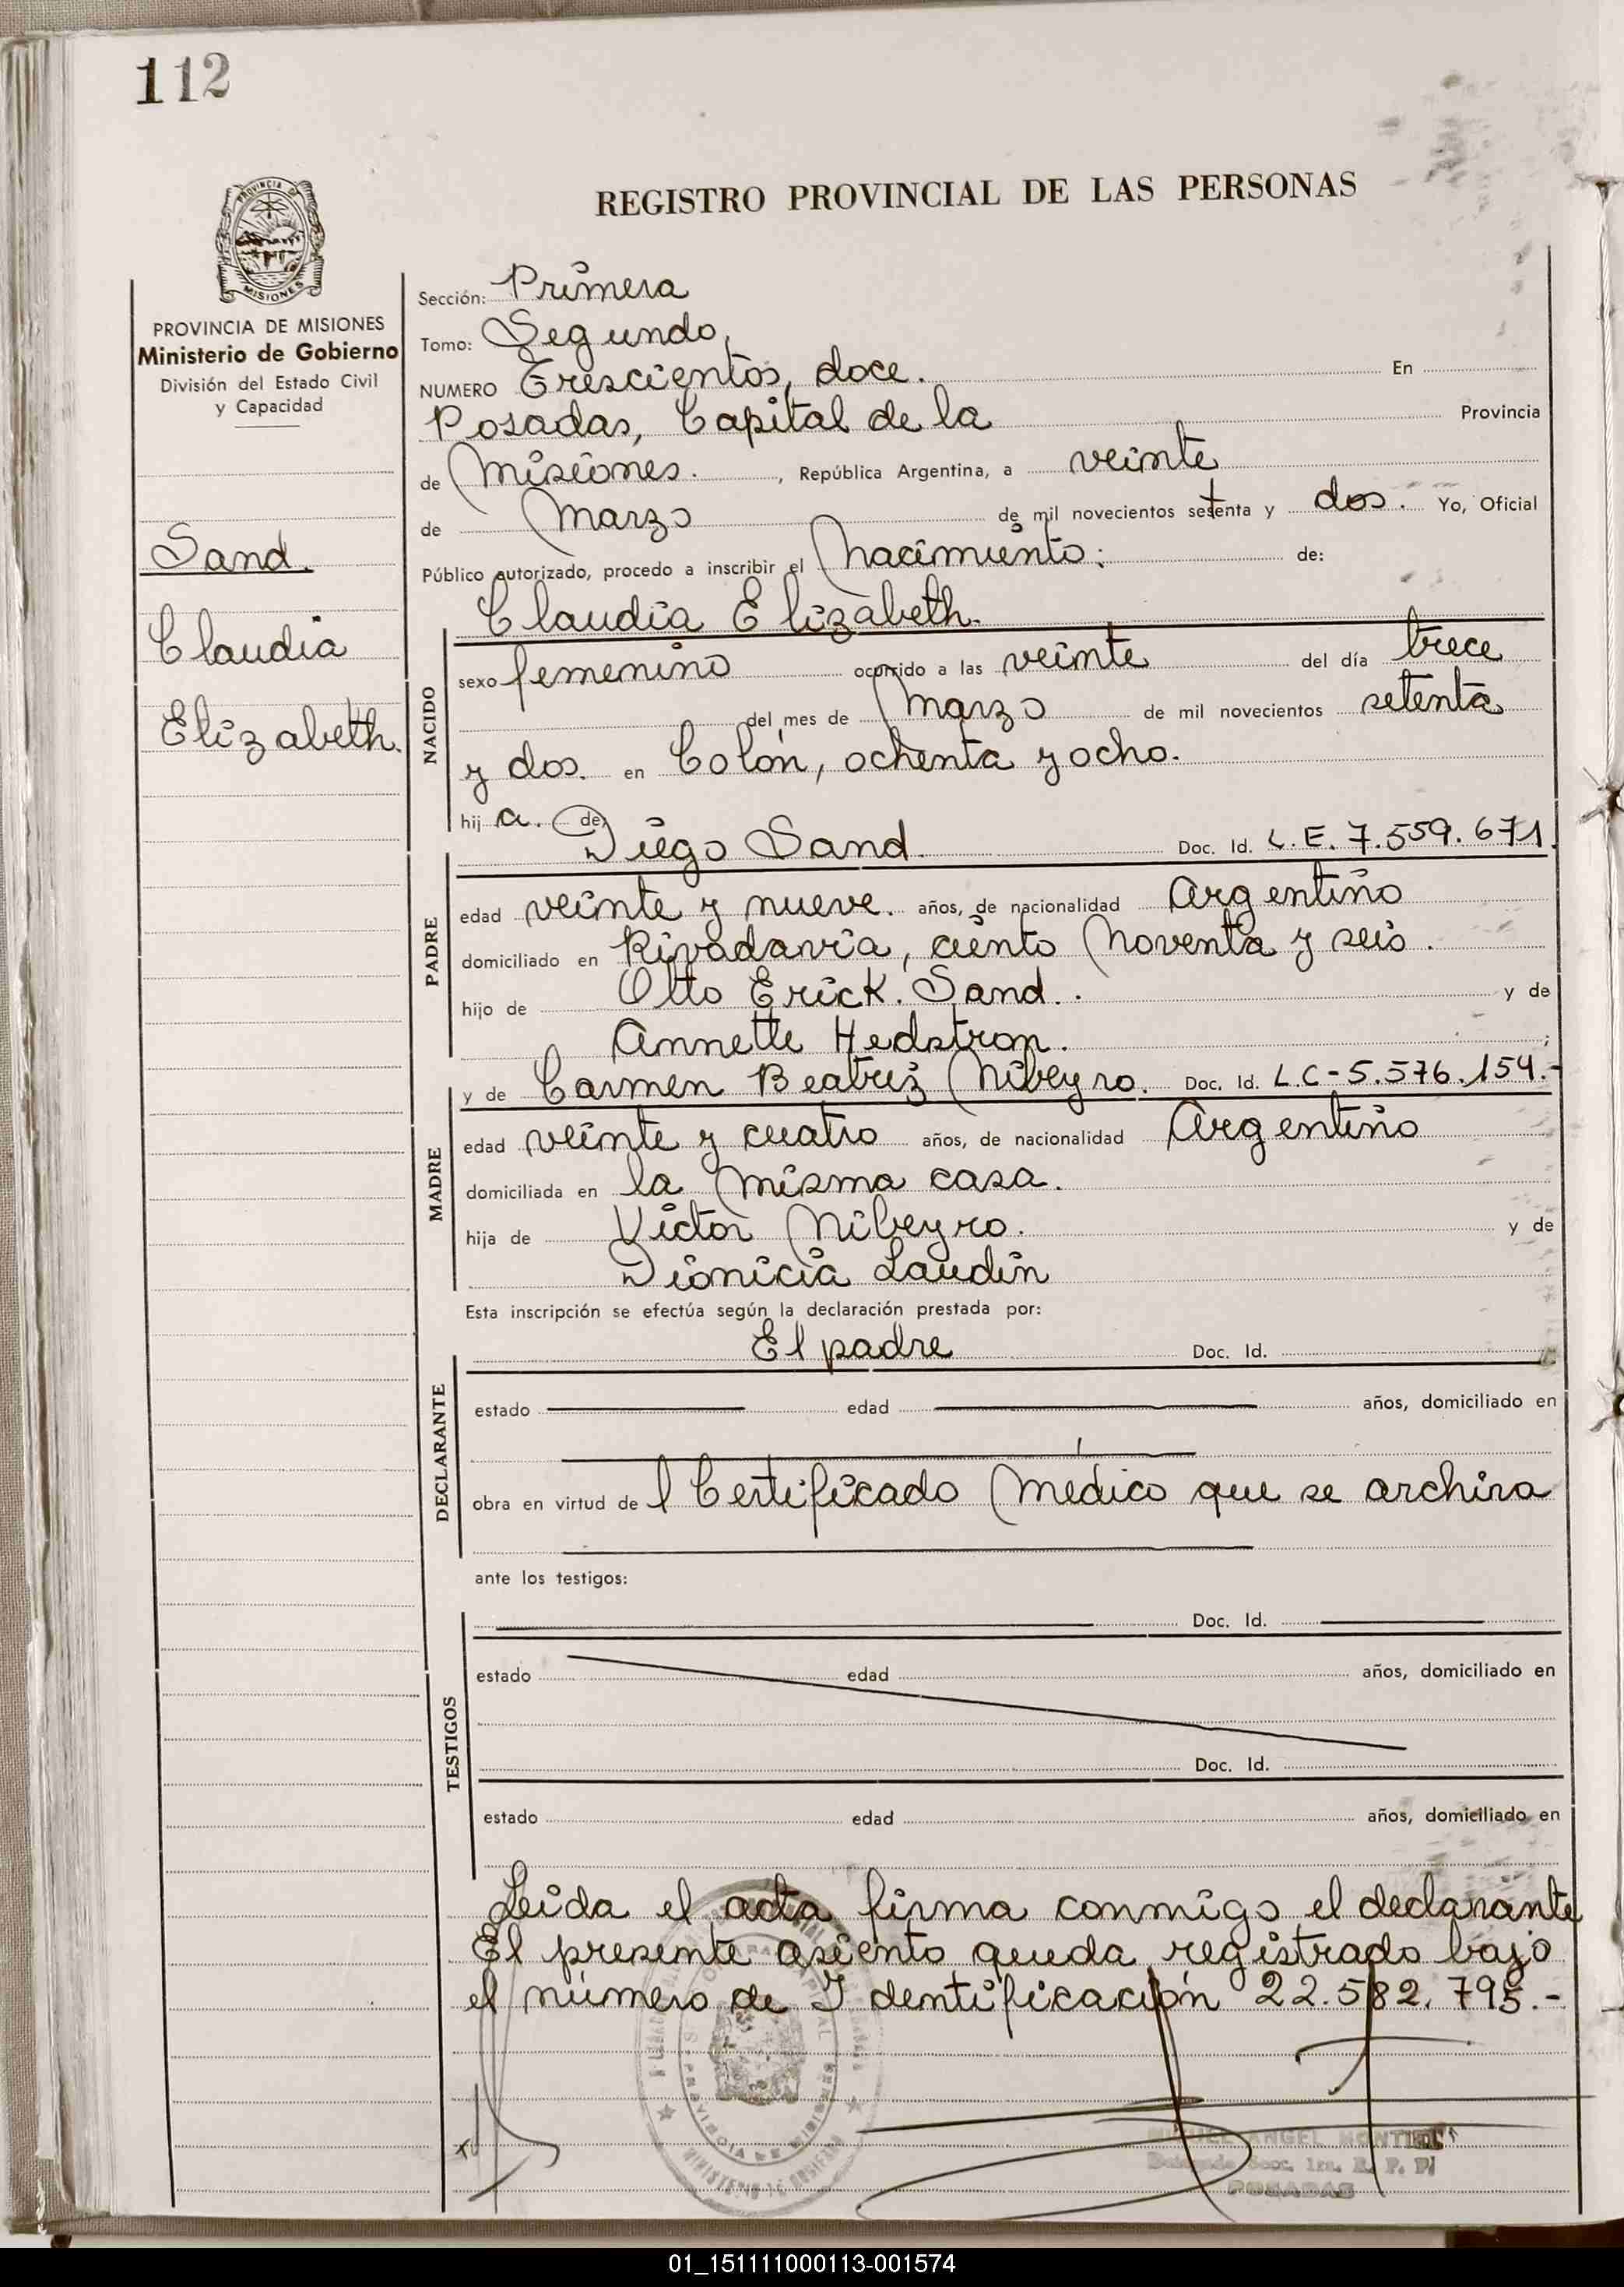 112
REGISTRO PROVINCIAL DE LAS PERSONAS
PROVINCIA DE MISIONES
Ministerio de Gobierno
División del Estado Civil
y Capacidad
Sand.
Claudia
Elizabeth.
Sección: Primera
Tomo: Segundo,
NUMERO Trescientos, doce. En
Posadas, Capital de la Provincia
de Misiones. , República Argentina, a veinte
de Marzo de mil novecientos setenta y dos. Yo, Oficial
Público autorizado, procedo a inscribir el Nacimiento: de:
Claudia Elizabeth.
NACIDO
sexo femenino ocurrido a las veinte del día trece
del mes de Marzo de mil novecientos setenta
y dos. en Colón, ochenta y ocho.
hij a. de
Diego Sand. Doc. Id. L.E. 7.559.671.
PADRE
edad veinte y nueve. años, de nacionalidad Argentino
domiciliado en Rivadavia, ciento noventa y seis.
hijo de Otto Erick. Sand. y de
Annette Hedstron. ;
y de Carmen Beatriz Nibeyro. Doc. Id. L.C-5.576.154.-
MADRE
edad veinte y cuatro años, de nacionalidad Argentino
domiciliada en la misma casa.
hija de Victor Nibeyro. y de
Dionicia Laudin
Esta inscripción se efectúa según la declaración prestada por:
El padre Doc. Id.
DECLARANTE
estado edad años, domiciliado en
obra en virtud de l Certificado Medico que se archiva
ante los testigos:
Doc. Id.
TESTIGOS
estado edad años, domiciliado en
Doc. Id.
estado edad años, domiciliado en
Leida el acta firma conmigo el declarante
El presente asiento queda registrado bajo
el número de Identificación 22.582.795.-
MIGUEL ANGEL MONTIEL
Delegado Secc. 1ra. R. P. P.
POSADAS
01_151111000113-001574